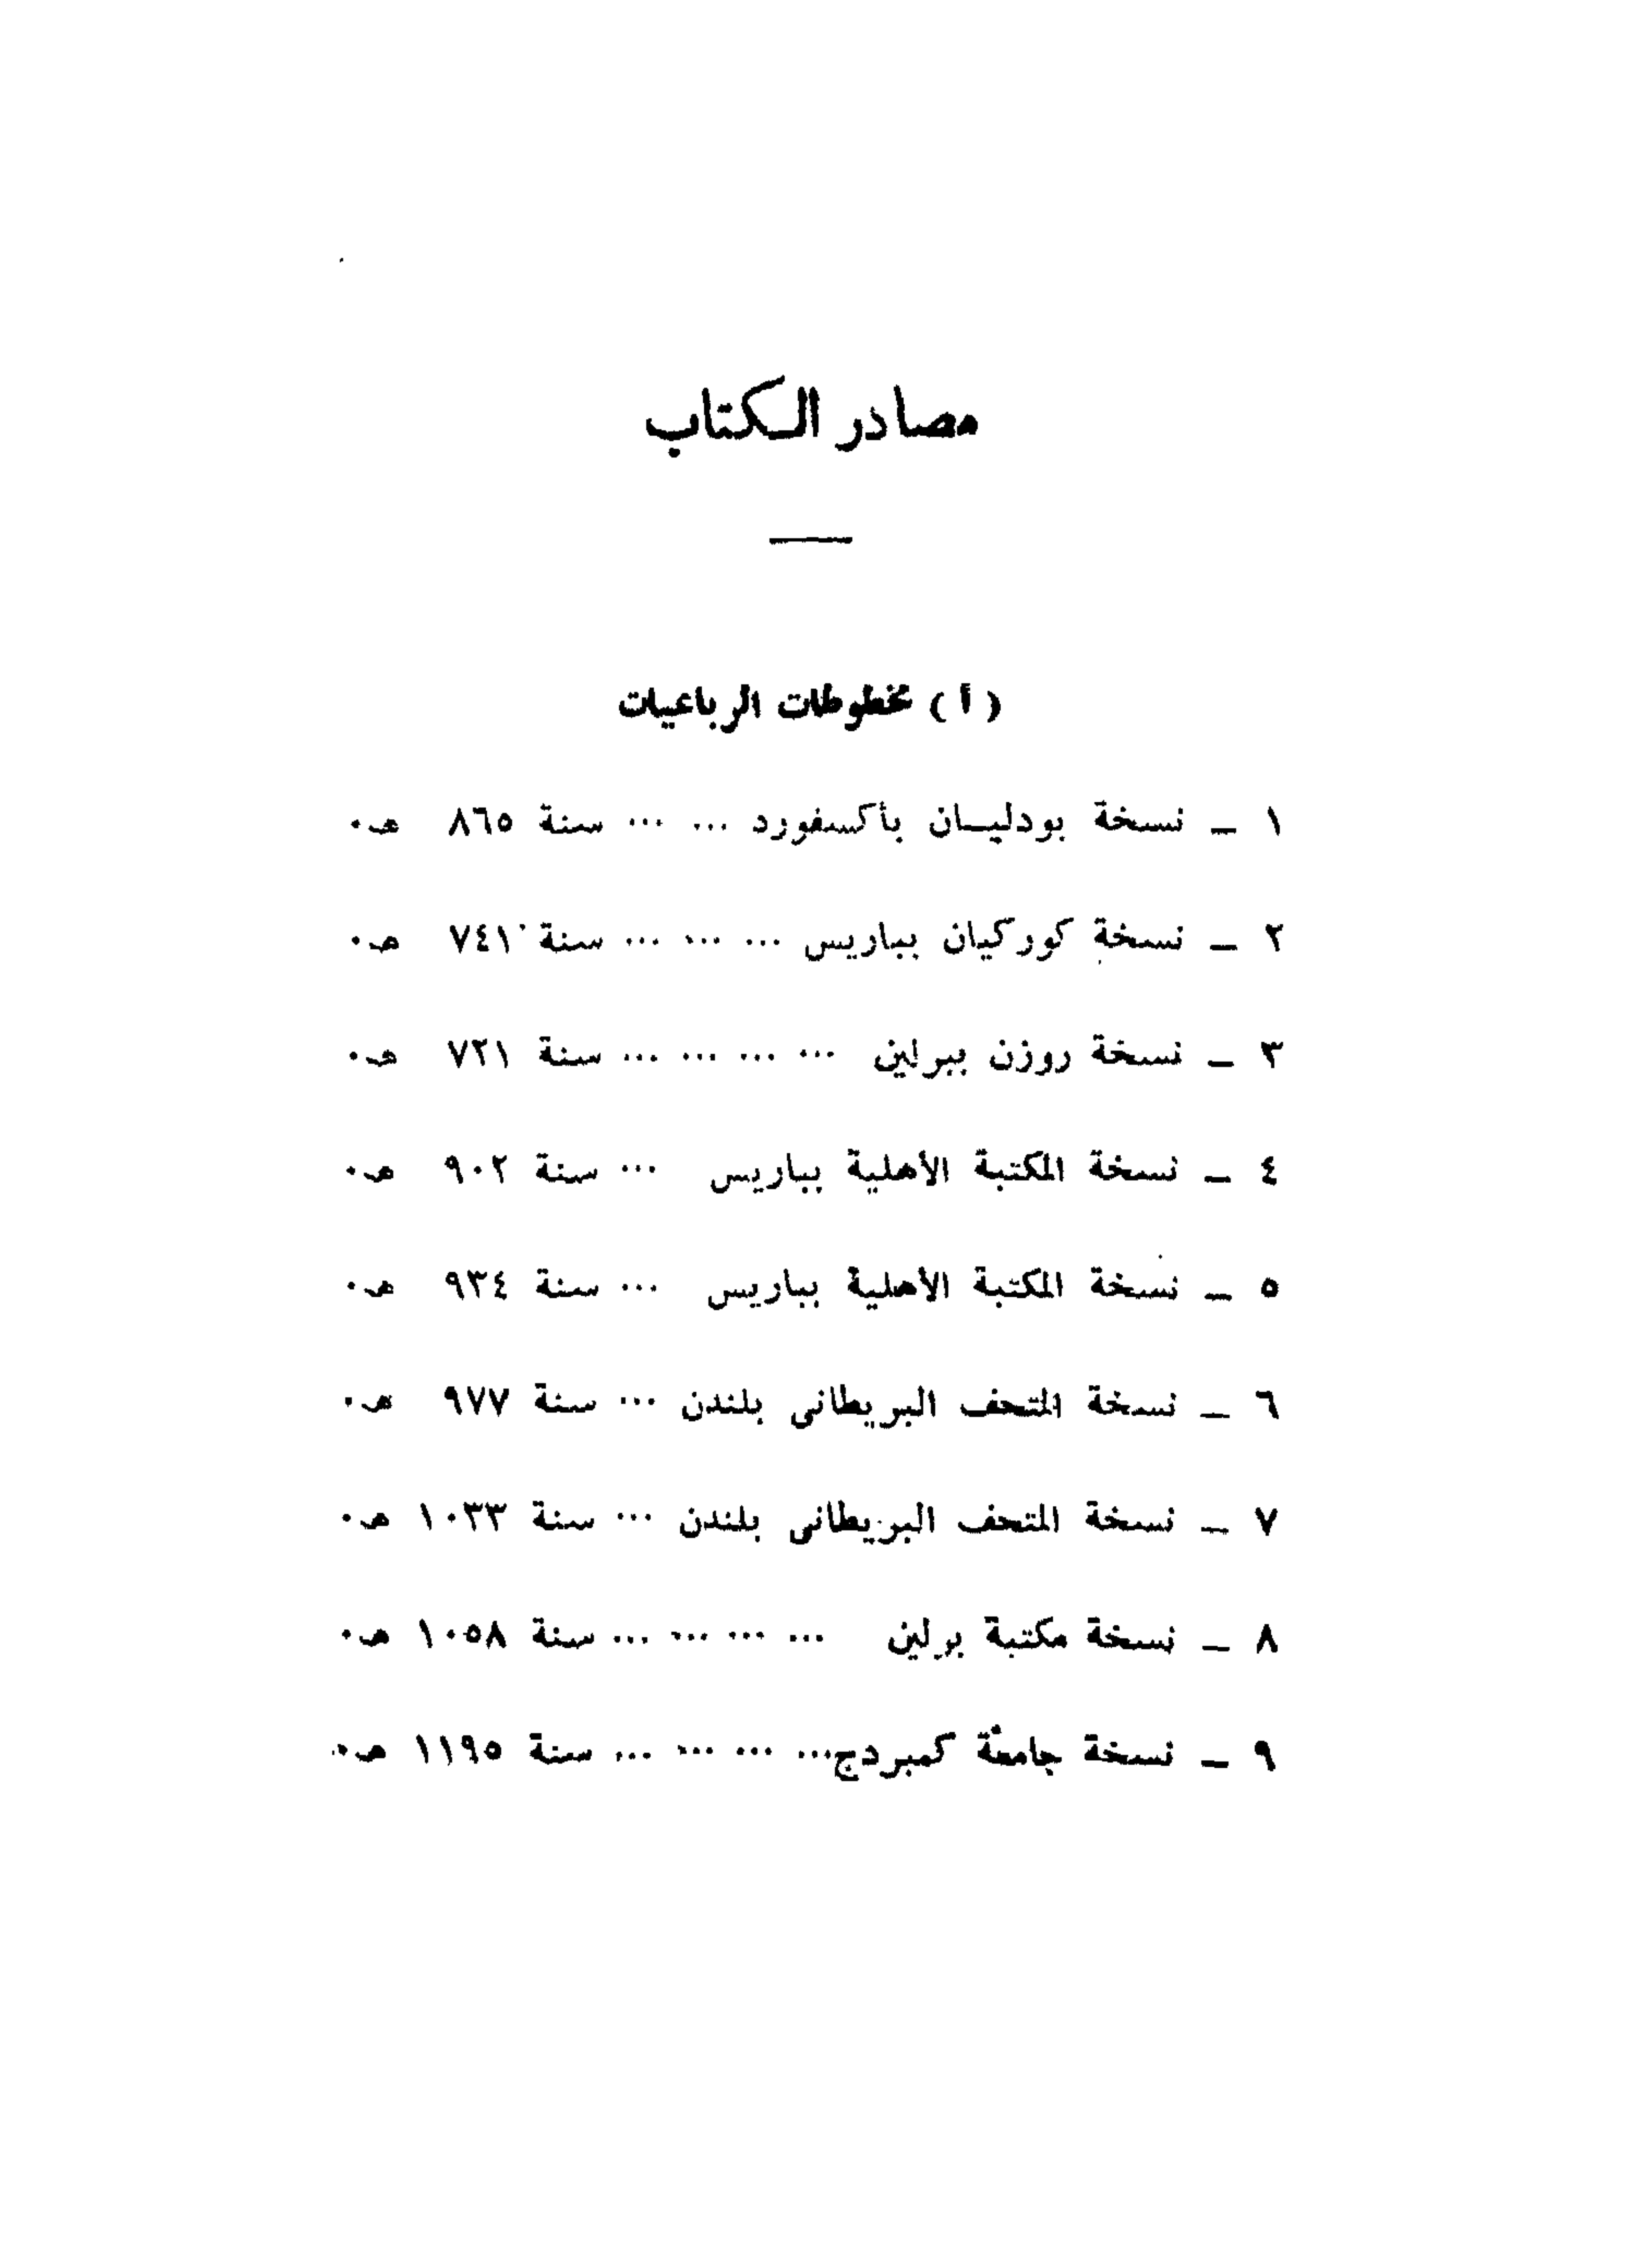 مصادر الكتاب
( أ ) مخطوطات الرباعيات
١ – نسخة بودليـان بأكسفورد ... ... سنة ٨٦٥ هـ.
٢ – نسخة كوركيان بباريس ... ... ... سنة ٧٤١ هـ.
٣ – نسخة روزن ببرلين ... ... ... ... سنة ٧٢١ هـ.
٤ – نسخة المكتبة الأهلية بباريس ... سنة ٩٠٢ هـ.
٥ – نسخة المكتبة الأهلية بباريس ... سنة ٩٣٤ هـ.
٦ – نسخة المتحف البريطانى بلندن ... سنة ٩٧٧ هـ.
٧ – نسخة المتحف البريطانى بلندن ... سنة ١٠٣٣ هـ.
٨ – نسخة مكتبة برلين ... ... ... ... سنة ١٠٥٨ هـ.
٩ – نسخة جامعة كمبردج... ... ... ... سنة ١١٩٥ هـ.